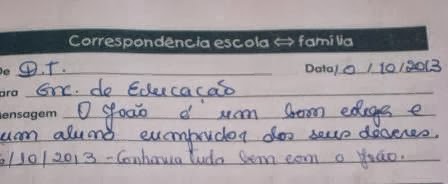 Correspondência escola ⇔ família
De D.T. Data 10/10/2013
ara Enc. de Educação
ensagem O João é um bom colega e
um aluno cumpridor dos seus deveres.
/10/2013 - Conhavia tudo bem com o João.